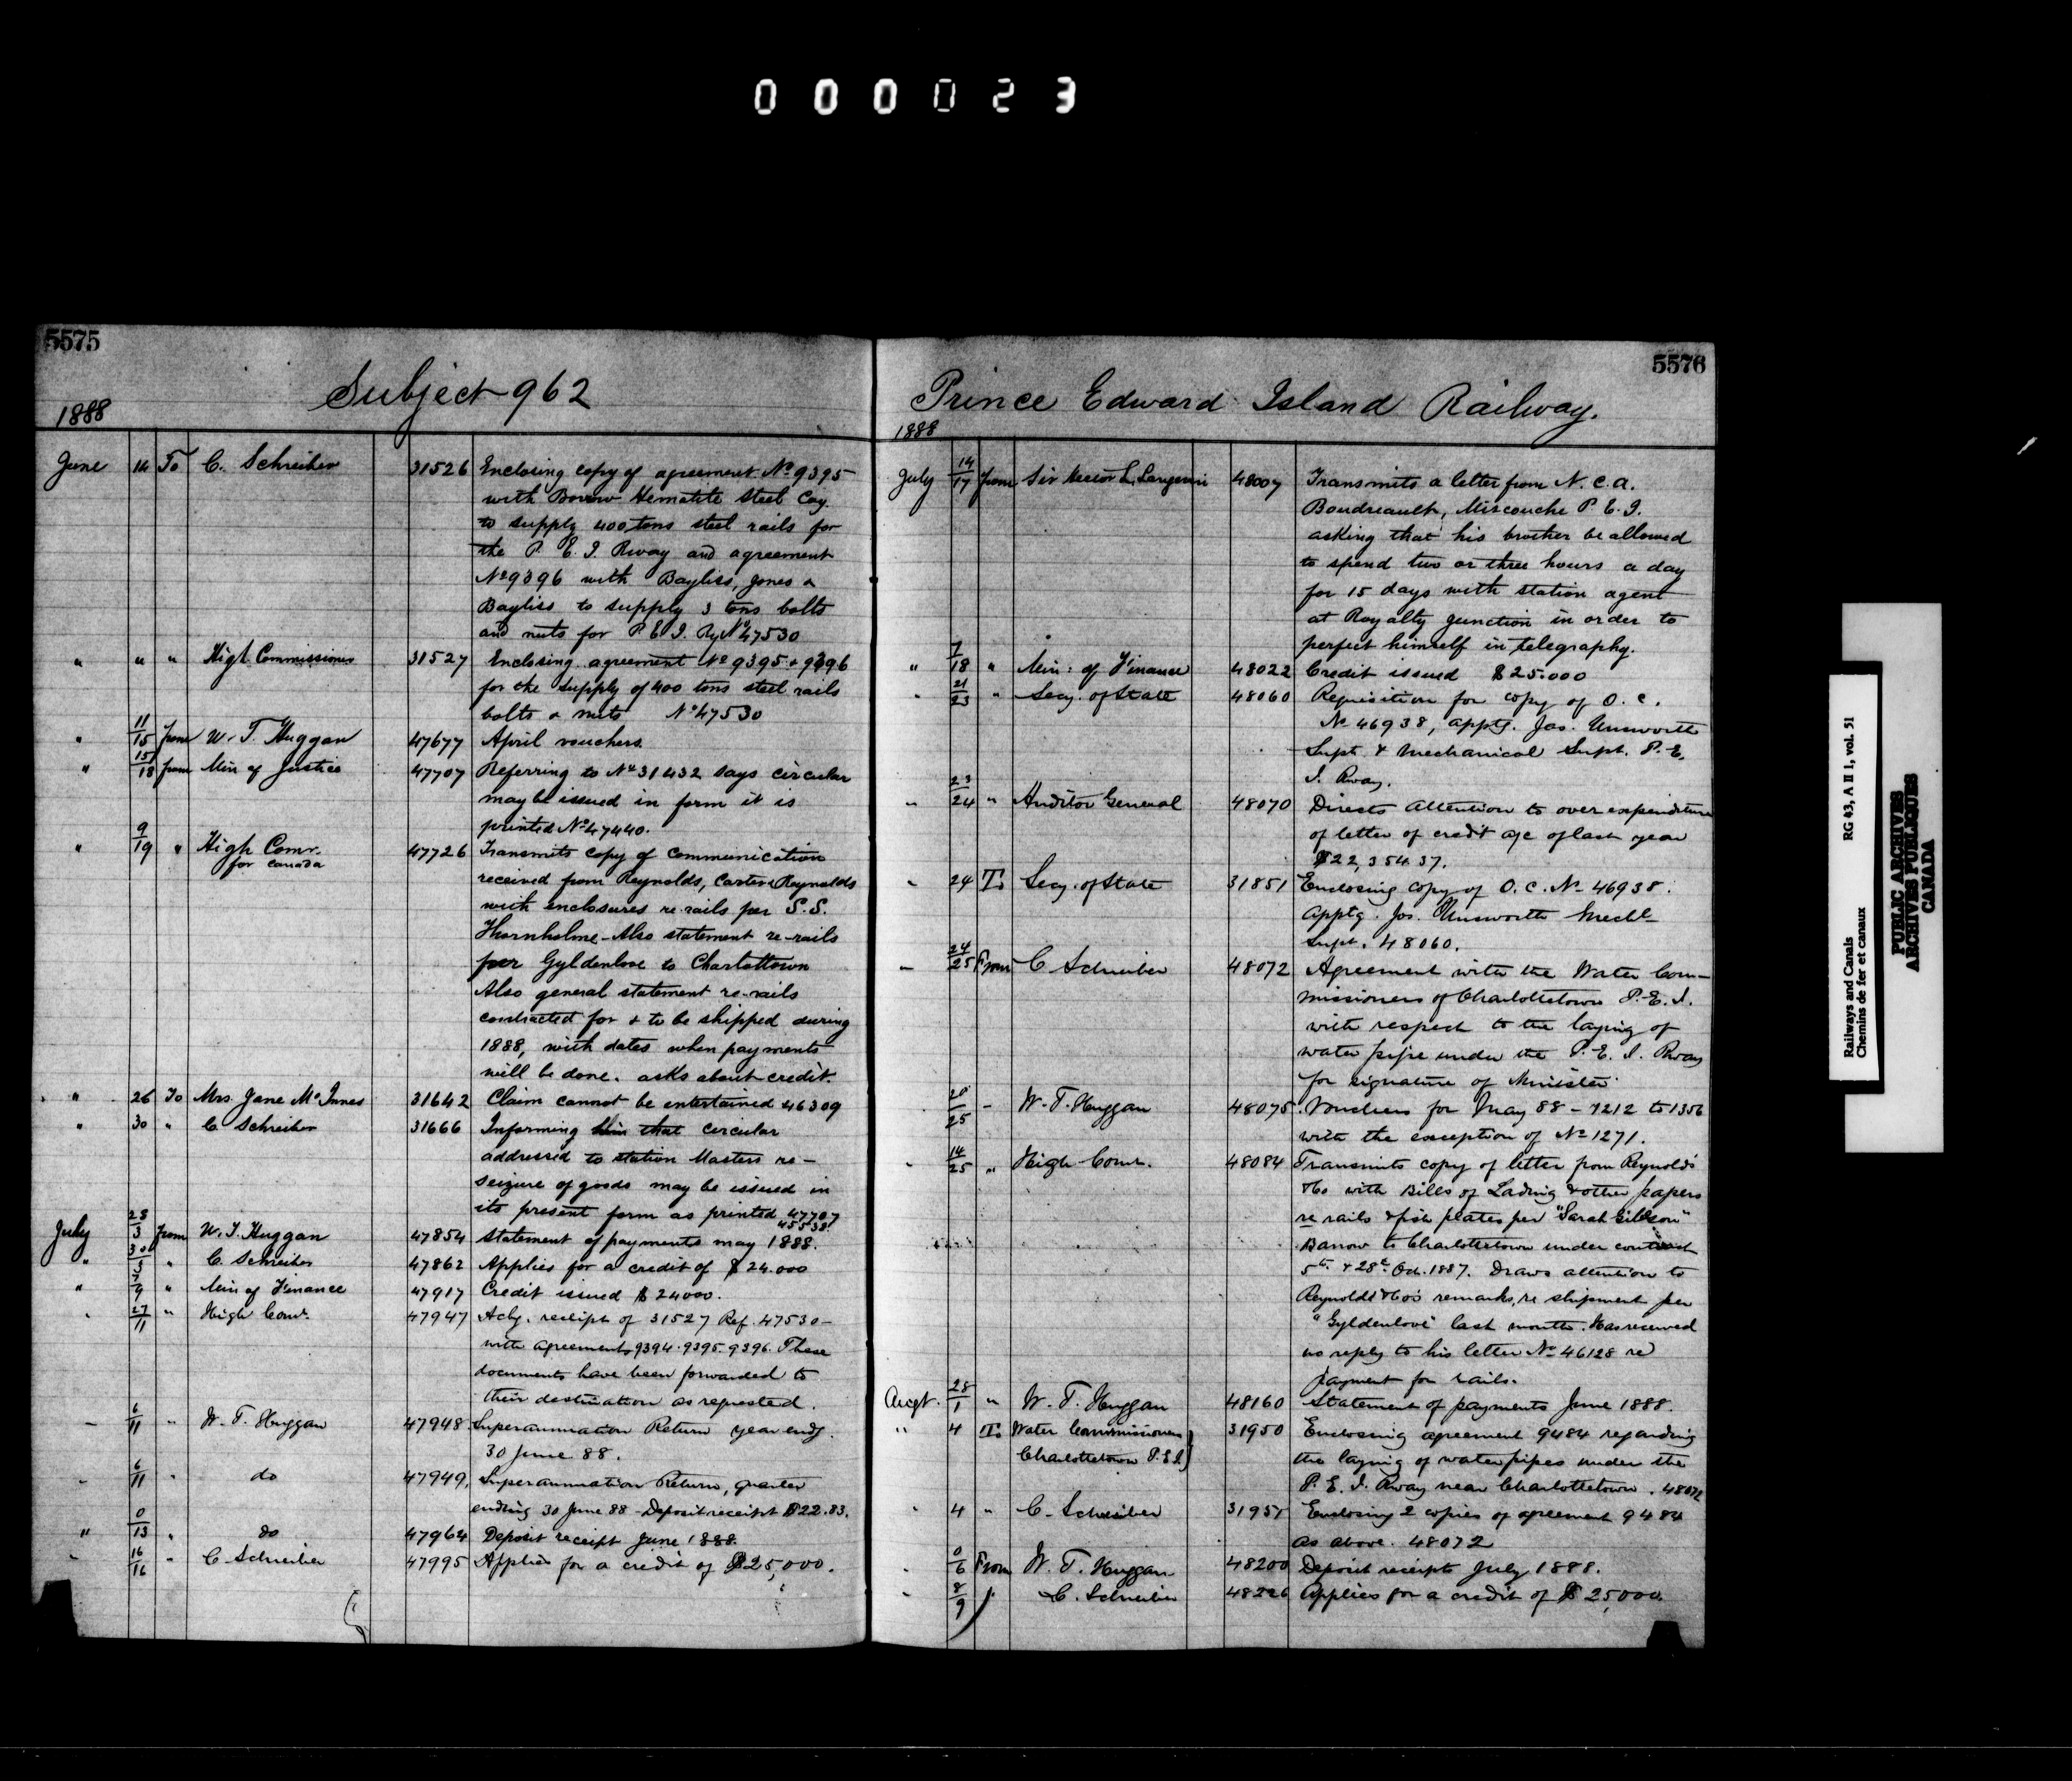 000023
5575
Subject 962
1888
June 14 To C. Schreiber 31526 Enclosing copy of agreement No 9395
with Barrow Hematite Steel Coy.
to supply 400 tons steel rails for
the P. E. I. Rway and agreement
No 9396 with Bayliss, Jones &
Bayliss to supply 3 tons bolts
and nuts for P. E. I. Ry No 47530
" " " High Commissioner 31527 Enclosing agreement No 9395 & 9396
for the supply of 400 tons steel rails
bolts & nuts No 47530
" 11/15 from W. T. Huggan 47677 April vouchers.
" 15/18 from Min of Justice 47707 Referring to No 31432 says circular
may be issued in form it is
printed No 47440.
" 9/19 " High Comr. 47726 Transmits copy of communication
for Canada
received from Reynolds, Carter & Reynolds
with enclosures re rails per S.S.
Thornholme - Also statement re-rails
per Gyldenlove to Charlottown
Also general statement re-rails
contracted for & to be shipped during
1888, with dates when payments
will be done. asks about credit.
" 26 To Mrs. Jane McInnes 31642 Claim cannot be entertained 46309
" 30 " C. Schreiber 31666 Informing him that circular
addressed to station Masters re-
seizure of goods may be issued in
its present form as printed 47707
45538
July 28/3 from W. T. Huggan 47854 Statement of payments may 1888.
" 30/5 " C. Schreiber 47862 Applies for a credit of $24.000
" 7/9 " Min of Finance 47917 Credit issued $24000.
" 27/11 " High Comr. 47947 Ackg. receipt of 31527 Ref. 47530-
with agreements 9394.9395.9396. These
documents have been forwarded to
their destination as requested.
" 6/11 " W. T. Huggan 47948 Superannuation Return year endg.
30 June 88.
" 6/11 " do 47949, Superannuation Return, quarter
ending 30 June 88 - Deposit receipt $22.83.
" 0/13 " do 47964 Deposit receipt June 1888.
" 16/16 " C. Schreiber 47995 Applies for a credit of $25,000.
5576
Prince Edward Island Railway.
1888
July 14/17 from Sir Hector L. Langevin 48007 Transmits a letter from N. C. A.
Boudreault, Miscouche P. E. I.
asking that his brother be allowed
to spend two or three hours a day
for 15 days with station agent
at Royalty Junction in order to
perfect himself in telegraphy.
" 7/18 " Min: of Finance 48022 Credit issued $25.000
" 21/23 " Secy. of State 48060 Requisition for copy of O. C.
No 46938, apptg. Jas. Unsworth
Supt. & Mechanical Supt. P. E.
I. Rway.
" 23/24 " Auditor General 48070 Directs attention to over expenditure
of letter of credit a/c of last year
$22,354.37.
" 24 To Secy. of State 31851 Enclosing copy of O. C. No 46938.
apptg. Jos. Unsworth Mechl
Supt. 48060.
" 24/25 From C Schreiber 48072 Agreement with the Water Com-
missioners of Charlottetown P. E. I.
with respect to the laying of
water pipe under the P. E. I. Rway
for signature of Minister
20/25 " W. T. Huggan 48075. Vouchers for May 88 - 1212 to 1356
with the exception of No 1271.
" 14/25 " High Comr. 48084 Transmits copy of letter from Reynolds
&Co with Bills of Lading & other papers
re rails & fish plates per "Sarah Gibson"
Barrow to Charlottetown under contract
5th & 28th Oct. 1887. Draws attention to
Reynolds &Co's remarks, re shipment per
"Gyldenlove" last month. Has received
no reply to his letter No 46128 re
payment for rails.
Augt. 28/1 " W. T. Huggan 48160 Statement of payments June 1888.
" 4 To Water Commissioners 31950 Enclosing agreement 9484 regarding
Charlottetown P.E.I. the laying of water pipes under the
P. E. I. Rway near Charlottetown. 48072
" 4 " C. Schreiber 31951 Enclosing 2 copies of agreement 9484
as above. 48072
" 0/6 From W. T. Huggan 48200 Deposit receipts July 1888.
" 8/9 " C. Schreiber 48226 Applies for a credit of $25,000.
Railways and Canals RG 43, A II 1, vol. 51
Chemins de fer et canaux
PUBLIC ARCHIVES
ARCHIVES PUBLIQUES
CANADA